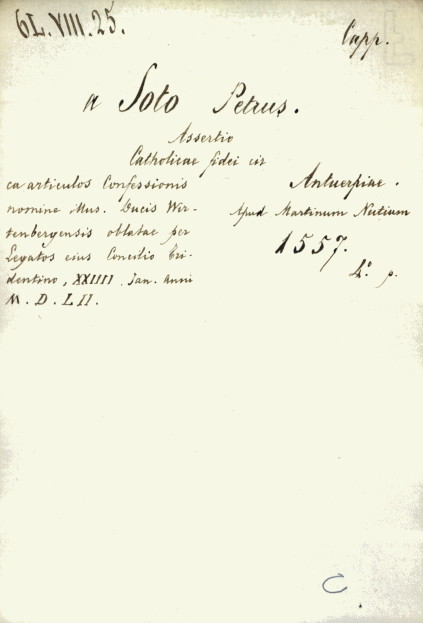 6L.VIII.25.
Capp.
a Soto Petrus.
Assertio
Catholicae fidei cir
ca articulos Confessionis
nomine Illus. Ducis Wir-
tenbergensis oblatae per
Legatos eius Concilio Tri-
dentino, XXIIII. Jan. Anni
M. D. LII.
Antuerpiae.
Apud Martinum Nutium
1557.
4.° p.
C